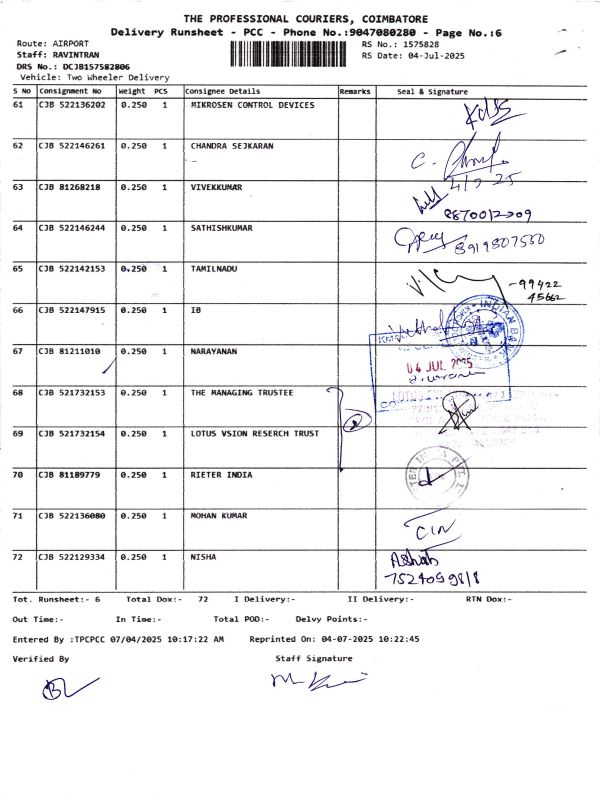 THE PROFESSIONAL COURIERS, COIMBATORE
Delivery Runsheet - PCC - Phone No.:9047080280 - Page No.:6
Route: AIRPORT RS No.: 1575828
Staff: RAVINTRAN RS Date: 04-Jul-2025
DRS No.: DCJB157582806
Vehicle: Two Wheeler Delivery
S No Consignment No Weight PCS Consignee Details Remarks Seal & Signature
61 CJB 522136202 0.250 1 MIKROSEN CONTROL DEVICES
62 CJB 522146261 0.250 1 CHANDRA SEJKARAN
4/7 25
63 CJB 81268218 0.250 1 VIVEKKUMAR
8870012309
64 CJB 522146244 0.250 1 SATHISHKUMAR
8919807550
65 CJB 522142153 0.250 1 TAMILNADU
-99422
45662
66 CJB 522147915 0.250 1 IB
INDIAN BANK
67 CJB 81211010 0.250 1 NARAYANAN
04 JUL 2025
68 CJB 521732153 0.250 1 THE MANAGING TRUSTEE
LOTUS
69 CJB 521732154 0.250 1 LOTUS VSION RESERCH TRUST
70 CJB 81189779 0.250 1 RIETER INDIA
71 CJB 522136080 0.250 1 MOHAN KUMAR
72 CJB 522129334 0.250 1 NISHA
7524099818
Tot. Runsheet:- 6 Total Dox:- 72 I Delivery:- II Delivery:- RTN Dox:-
Out Time:- In Time:- Total POD:- Delvy Points:-
Entered By :TPCPCC 07/04/2025 10:17:22 AM Reprinted On: 04-07-2025 10:22:45
Verified By Staff Signature